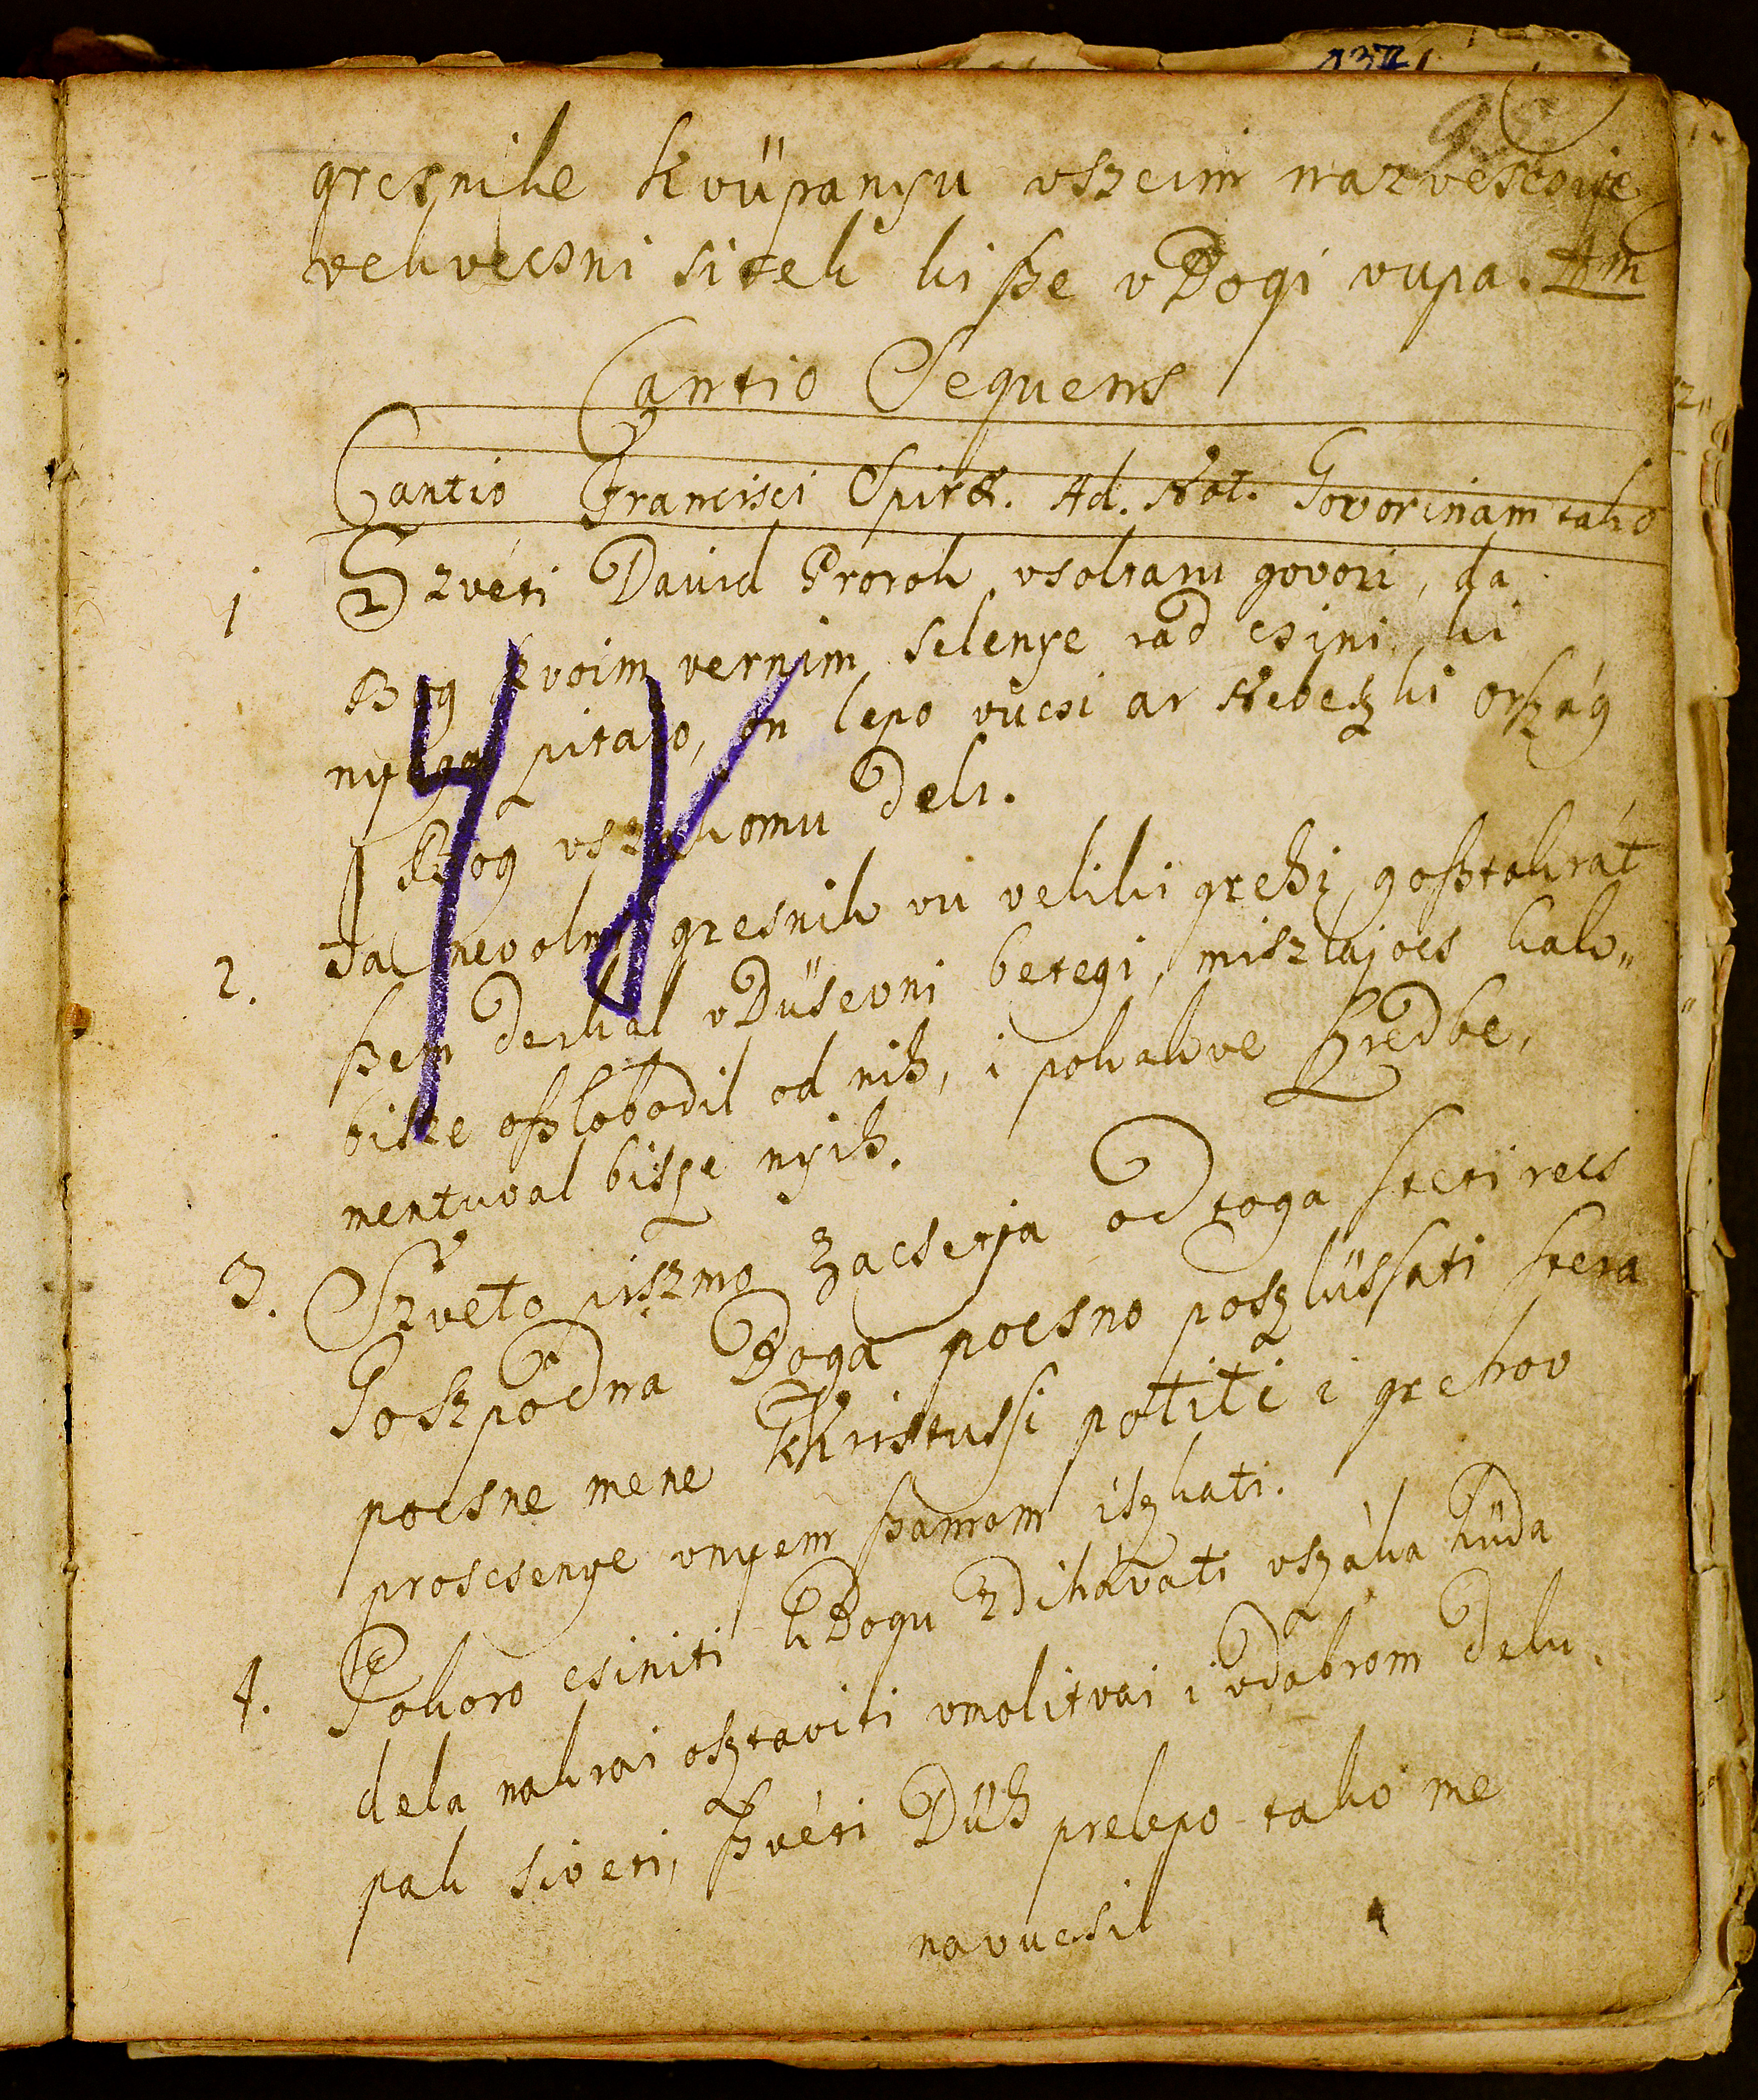 gresnike k vüpanyu vszeim nazvescsuje
vekvecsni sitek ki sze v Bogi vupa. Am
Cantio Sequens
Cantio Francisci Spirit. Ad. Not. Govorinam tako
1 Szvéti David Prorok vsoltari govori, da
Bog szvoim vernim selenye rad csini, ki
nyega pitajo, on lepo vücsi ar Nebeszki orszag
Bog vszakomu deli.
2. Ja nevolni gresnik vu veliki grehi, gosztokrát
szem derkal v Düsevni betegi, miszlajocs kak„
bisze oszlobodil od nih, i pokakve szredbe,
mentuval bisze nyih.
3. Szveto piszmo zacserja od toga steti recs
Goszpodna Boga pocsno poszlüssati stera
pocsne mene k Kristussi potiti i grehov
proscsenye vnyem szamom iszkati.
4. Pokoro csiniti k Bogu zdihávati vszáka hüda
dela nakrai osztaviti vmolitvai i vdobrom delu,
pak siveti, szvéti Düh prelepo tako me
navucsil